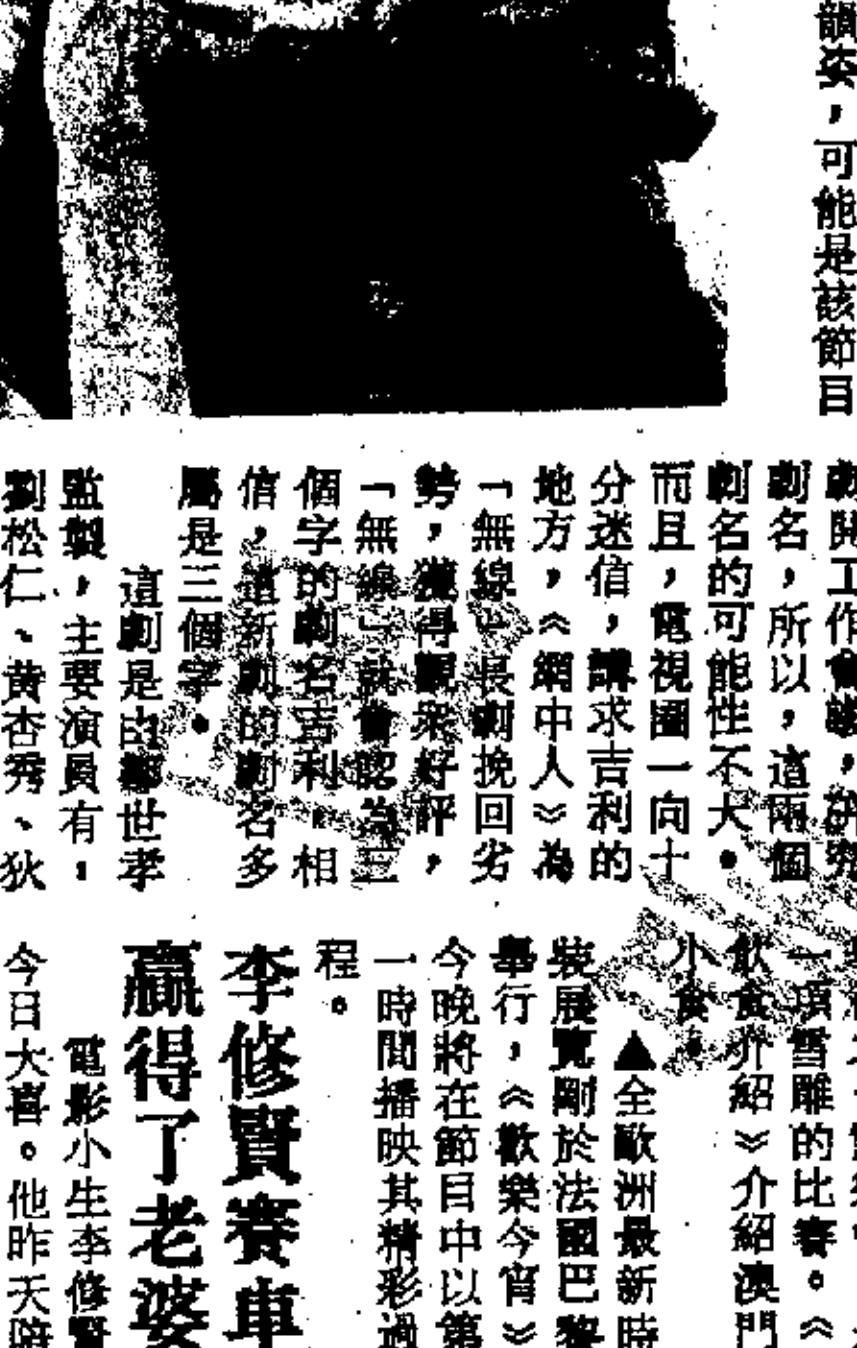 韻姿，可能是該節目
劇開工作會議，研究
劇名，所以，這兩個
劇名的可能性不大。
而且，電視圈一向十
分迷信，講求吉利的
地方，《網中人》為
「無線」長劇挽回劣
勢，獲得觀眾好評，
「無線」就會認為三
個字的劇名吉利，相
信，這新劇的劇名多
屬是三個字。
這劇是由鄭世孝
監製，主要演員有：
劉松仁、黃杏秀、狄
一項雪雕的比賽。《
飲食介紹》介紹澳門
小食。
▲全歐洲最新時
裝展覽剛於法國巴黎
舉行，《歡樂今宵》
今晚將在節目中以第
一時間播映其精彩過
程。
李修賢賽車
贏得了老婆
電影小生李修賢
今日大喜。他昨天陪